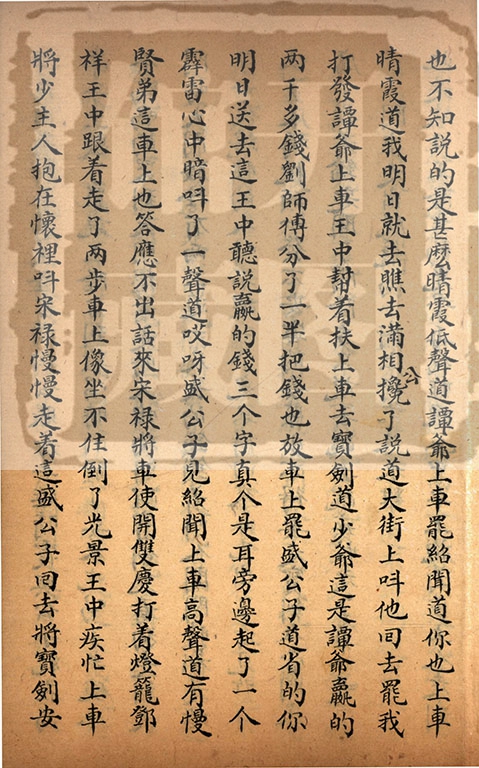 也不知説的是甚麽晴霞低聲道譚爺上車罷紹聞道你也上車
晴霞道我明日就去瞧去滿相公攙了説道大街上呌他回去罷我
打發譚爺上車王中幫着扶上車去寶劍道少爺這是譚爺贏的
两千多錢劉師傅分了一半把錢也放車上罷盛公子道省的你
明日送去這王中聽説贏的錢三个字真个是耳旁邊起了一个
霹雷心中暗呌了一聲道哎呀盛公子見紹聞上車高聲道有慢
賢弟這車上也答應不出話來宋禄將車使開雙慶打着燈籠鄧
祥王中跟着走了两步車上像坐不住倒了光景王中疾忙上車
將少主人抱在懷裡呌宋禄慢慢走着這盛公子回去將寶劍安